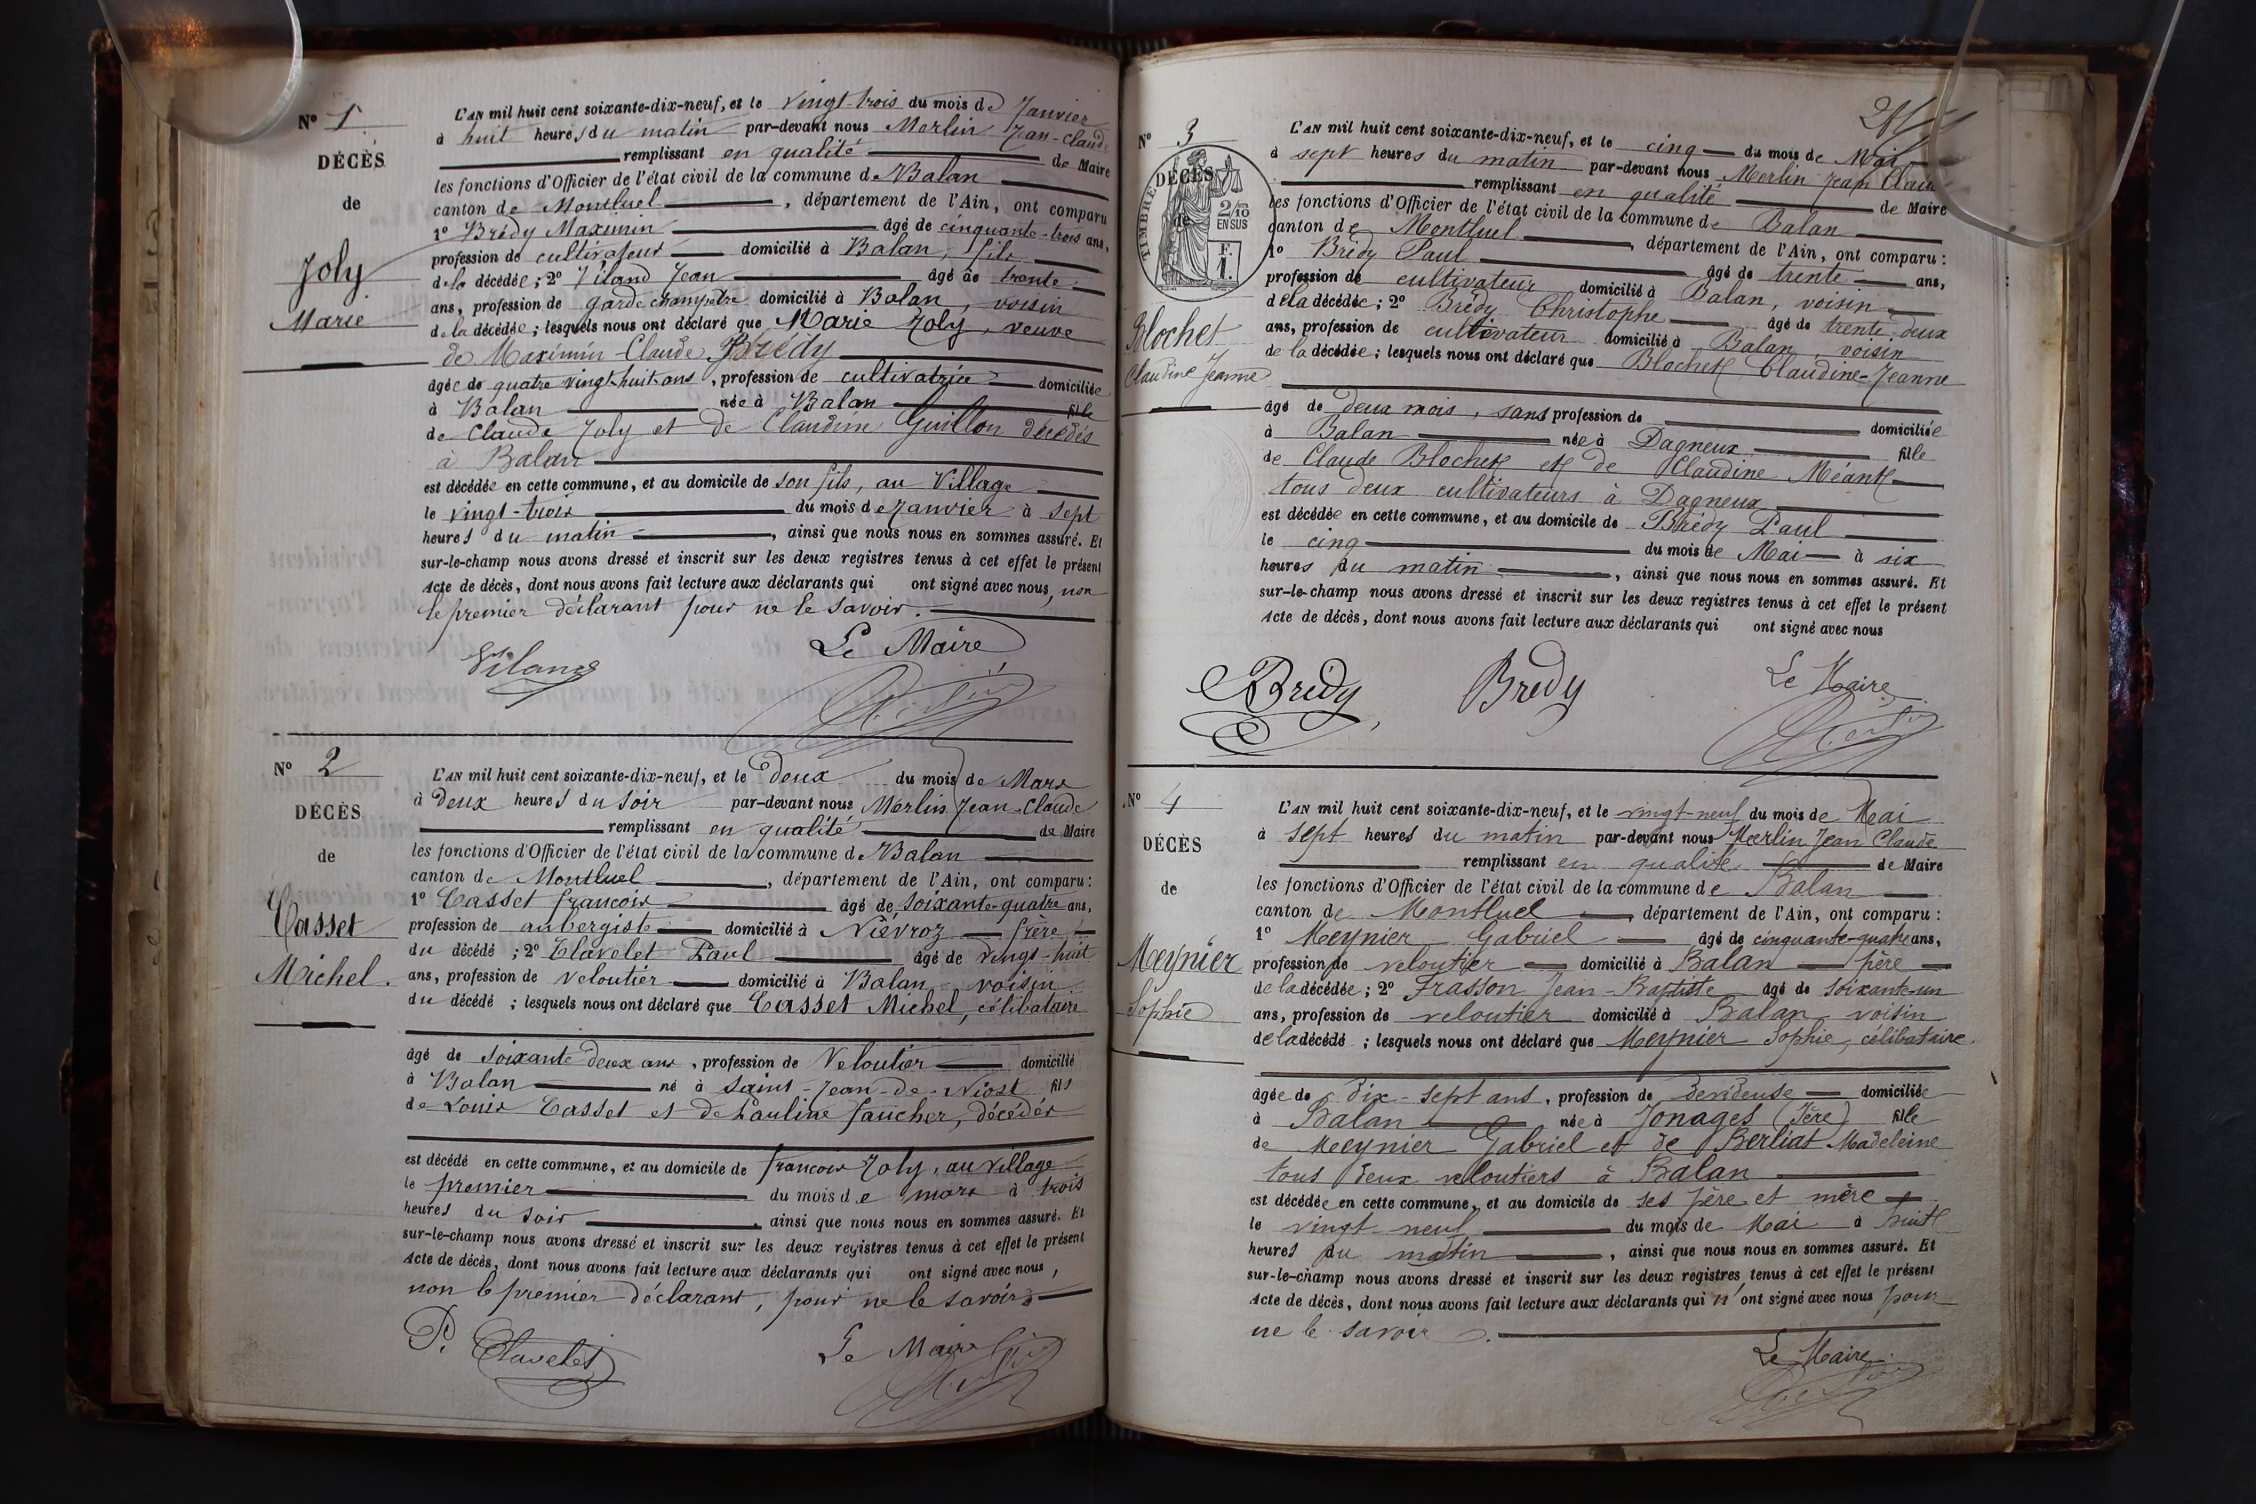 Nº 1
DÉCÈS
de
Joly
Marie
L'AN mil huit cent soixante-dix-neuf, et le vingt-trois du mois de Janvier
à huit heures du matin par-devant nous Merlin Jean-Claude
remplissant en qualité de Maire
les fonctions d'Officier de l'état civil de la commune de Balan
canton de Montluel, département de l'Ain, ont comparu
1º Brédy Maximin âgé de cinquante-trois ans,
profession de cultivateur domicilié à Balan, fils
de la décédée; 2º Viland Jean âgé de trente
ans, profession de garde champêtre domicilié à Balan, voisin
de la décédée; lesquels nous ont déclaré que Marie Joly, veuve
de Maximin-Claude Brédy
âgée de quatre vingt-huit ans, profession de cultivatrice domiciliée
à Balan née à Balan fille
de Claude Joly et de Claudine Guillon décédés
à Balan
est décédée en cette commune, et au domicile de son fils, au Village
le vingt-trois du mois de Janvier à sept
heures du matin, ainsi que nous nous en sommes assuré. Et
sur-le-champ nous avons dressé et inscrit sur les deux registres tenus à cet effet le présent
Acte de décès, dont nous avons fait lecture aux déclarants qui ont signé avec nous, non
le premier déclarant pour ne le savoir.
Le Maire
Viland
Nº 2
DÉCÈS
de
Casset
Michel.
L'AN mil huit cent soixante-dix-neuf, et le deux du mois de Mars
à deux heures du soir par-devant nous Merlin Jean-Claude
remplissant en qualité de Maire
les fonctions d'Officier de l'état civil de la commune de Balan
canton de Montluel, département de l'Ain, ont comparu:
1º Casset françois âgé de soixante-quatre ans,
profession de aubergiste domicilié à Niévroz frère
du décédé; 2º Clavelet Paul âgé de vingt-huit
ans, profession de veloutier domicilié à Balan voisin
du décédé; lesquels nous ont déclaré que Casset Michel, célibataire
âgé de soixante deux ans, profession de Veloutier domicilié
à Balan né à Saint-Jean-de-Niost fils
de Louis Casset et de Pauline Faucher, décédés
est décédé en cette commune, et au domicile de françois Joly, au village
le premier du mois de mars à trois
heures du soir, ainsi que nous nous en sommes assuré. Et
sur-le-champ nous avons dressé et inscrit sur les deux registres tenus à cet effet le présent
Acte de décès, dont nous avons fait lecture aux déclarants qui ont signé avec nous,
non le premier déclarant, pour ne le savoir
P. Clavelet
Le Maire
Nº 3
DÉCÈS
de
TIMBRE
2/10
EN SUS
F.
1.
Blochet
Claudine Jeanne
L'AN mil huit cent soixante-dix-neuf, et le cinq du mois de Mai
à sept heures du matin par-devant nous Merlin Jean Claude
remplissant en qualité de Maire
les fonctions d'Officier de l'état civil de la commune de Balan
canton de Montluel, département de l'Ain, ont comparu:
1º Brédy Paul âgé de trente ans,
profession de cultivateur domicilié à Balan, voisin
de la décédée; 2º Brédy Christophe âgé de trente-deux
ans, profession de cultivateur domicilié à Balan, voisin
de la décédée; lesquels nous ont déclaré que Blochet Claudine-Jeanne
âgé de deux mois, sans profession de domiciliée
à Balan née à Dagneux fille
de Claude Blochet et de Claudine Méant
tous deux cultivateurs à Dagneux
est décédée en cette commune, et au domicile de Brédy Paul
le cinq du mois de Mai à six
heures du matin, ainsi que nous nous en sommes assuré. Et
sur-le-champ nous avons dressé et inscrit sur les deux registres tenus à cet effet le présent
Acte de décès, dont nous avons fait lecture aux déclarants qui ont signé avec nous
Brédy Bredy Le Maire
Nº 4
DÉCÈS
de
Meynier
Sophie
L'AN mil huit cent soixante-dix-neuf, et le vingt-neuf du mois de Mai
à sept heures du matin par-devant nous Merlin Jean Claude
remplissant en qualité de Maire
les fonctions d'Officier de l'état civil de la commune de Balan
canton de Montluel, département de l'Ain, ont comparu:
1º Meynier Gabriel âgé de cinquante-quatre ans,
profession de veloutier domicilié à Balan père
de la décédée; 2º Frasson Jean-Baptiste âgé de soixante-un
ans, profession de veloutier domicilié à Balan voisin
de la décédé; lesquels nous ont déclaré que Meynier Sophie, célibataire.
âgée de dix-sept ans, profession de dévideuse domiciliée
à Balan née à Jonages (Isère) fille
de Meynier Gabriel et de Berliat Madeleine
tous deux veloutiers à Balan
est décédée en cette commune, et au domicile de ses père et mère
le vingt neuf du mois de Mai à huit
heures du matin, ainsi que nous nous en sommes assuré. Et
sur-le-champ nous avons dressé et inscrit sur les deux registres tenus à cet effet le présent
Acte de décès, dont nous avons fait lecture aux déclarants qui n'ont signé avec nous pour
ne le savoir.
Le Maire